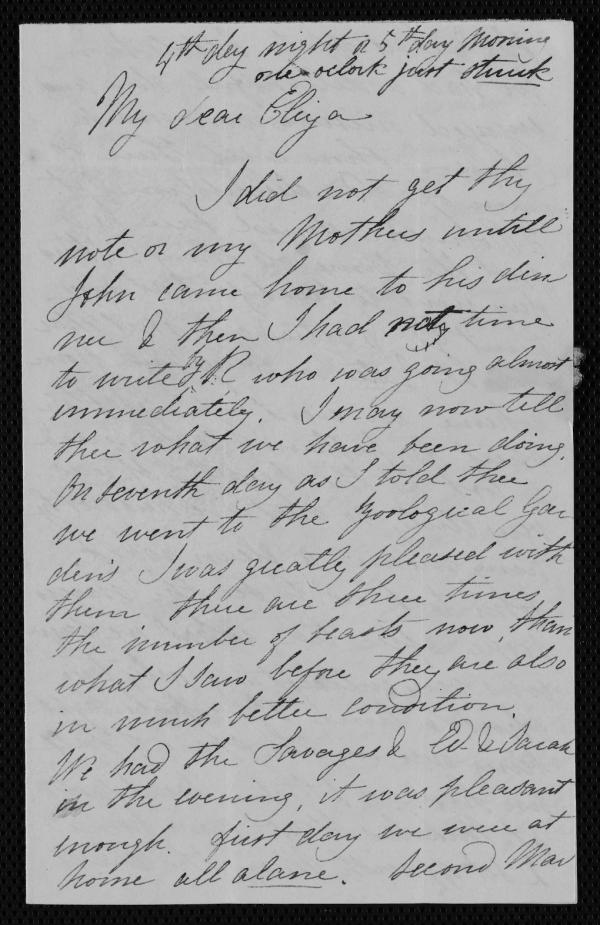 4th day night or 5th day Morning
one oclock just struck
My dear Eliza
I did not get thy
note or my Mothers untill
John came home to his din
ner & then I had not time
to write by R who was going almost
immediately. I may now tell
thee what we have been doing.
On seventh day as I told thee
we went to the Zoological Gar
dens I was greatly pleased with
them there are three times
the number of beasts now, than
what I saw before they are also
in much better condition.
We had the Savages & Ed & Sarah
in the evening, it was pleasant
enough. first day we were at
home all alone. Second Mor